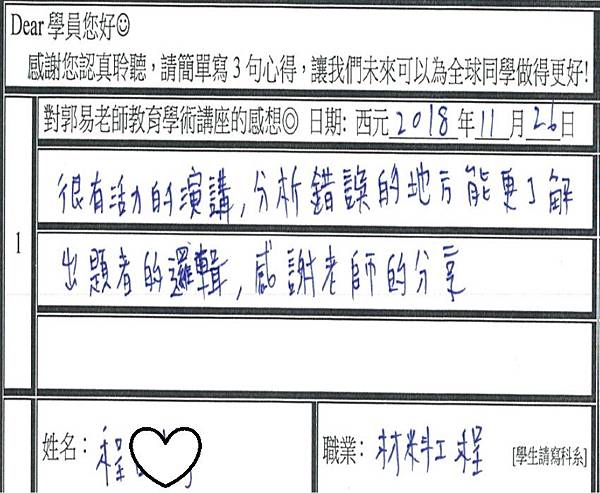 Dear 學員您好☺
感謝您認真聆聽，請簡單寫3句心得，讓我們未來可以為全球同學做得更好!
對郭易老師教育學術講座的感想◎ 日期: 西元2018年11月26日
1
很有活力的演講，分析錯誤的地方能更了解
出題者的邏輯，感謝老師的分享
姓名：程
職業：材料工程 [學生請寫科系]